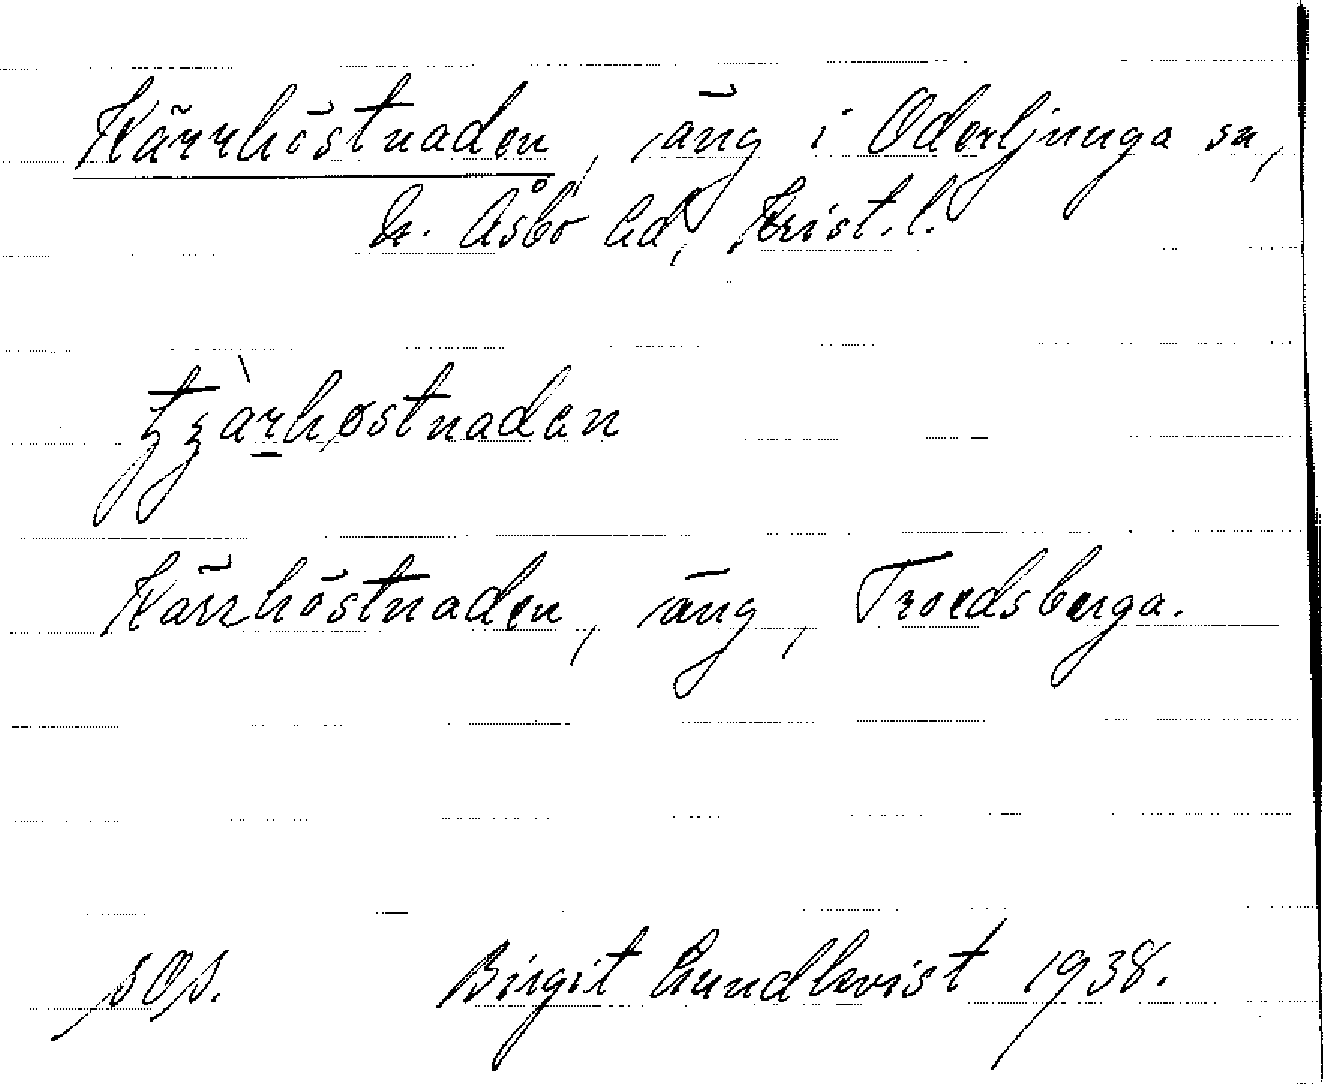 Kärrhöstnaden, äng i Oderljunga sn,
N. Åsbo hd, Krist.l.
Kärrhöstnaden, äng, Troedsberga.
sos. Birgit Lundkvist 1938.